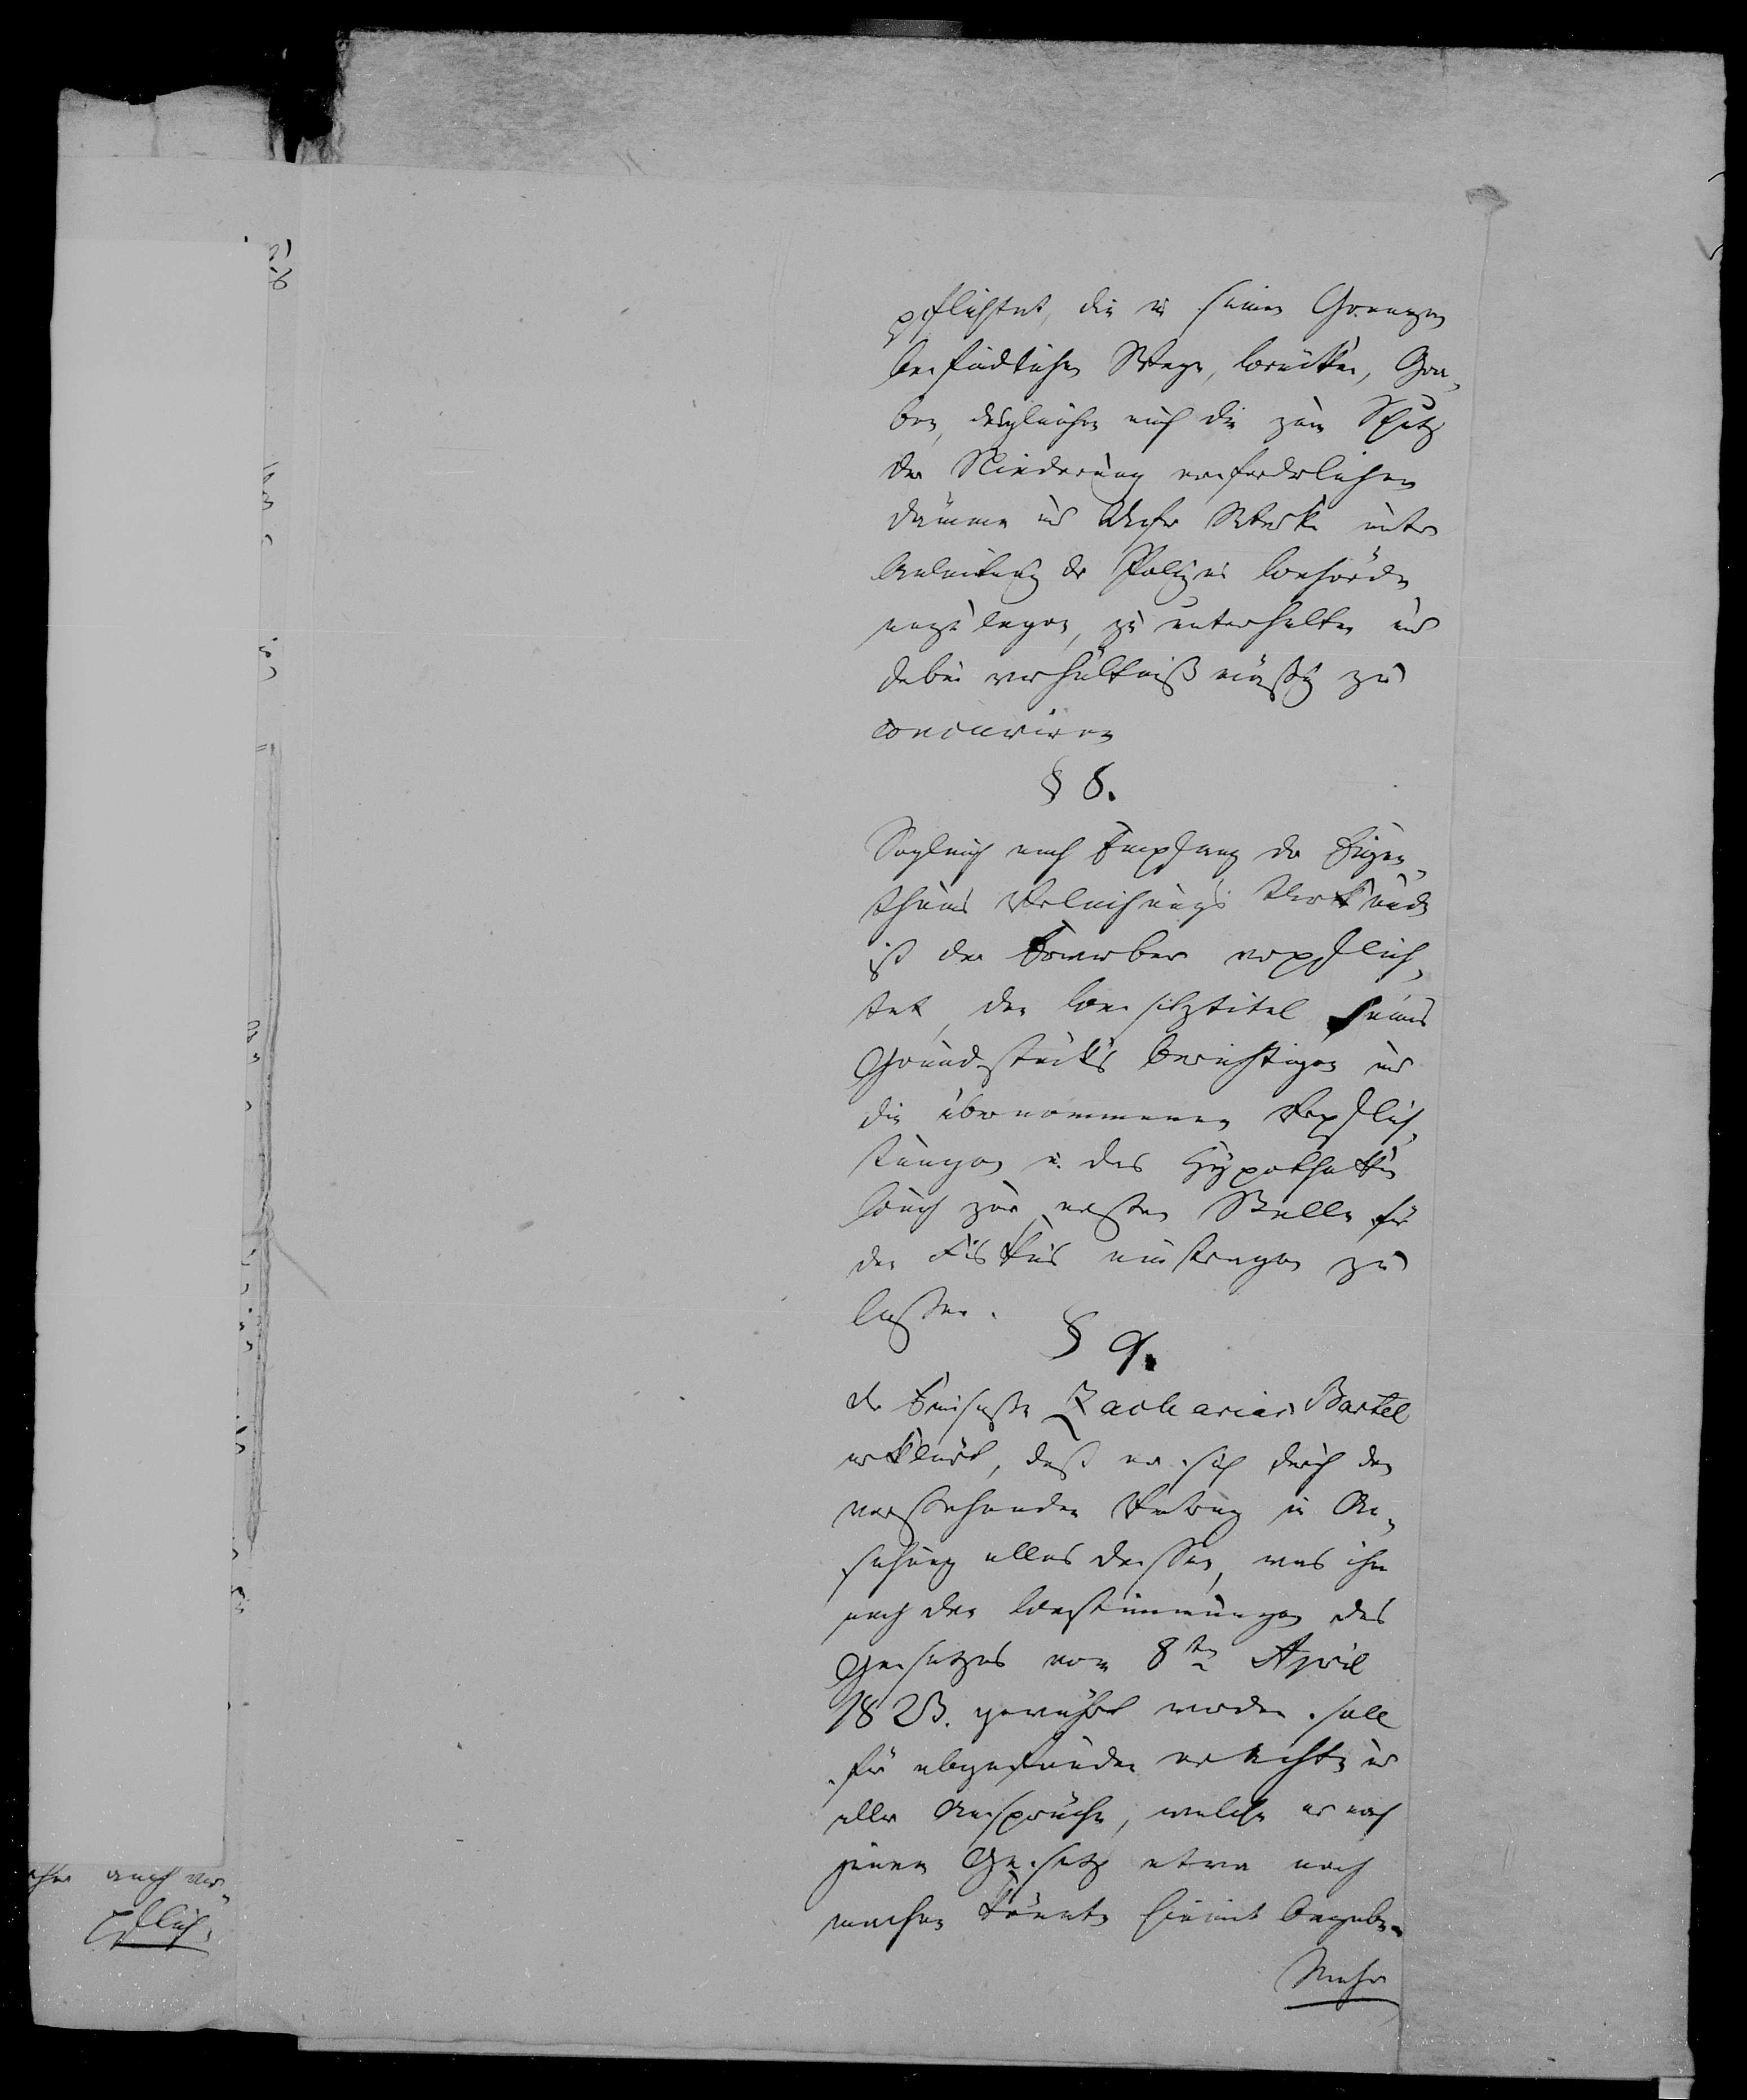 pflichtet, die in seinen Grenzen
befindlichen Wege, Brücken, Gra-
ben, desgleichen auch die zum Schutz
der Niederung erforderlichen
Dämme und Ufer Werke unter
Anleitung der Polizei Behörde
anzulegen, zu unterhalten und
dabei verhältnißmäßig zu
concuriren
§ 8.
Sogleich nach Empfang der Eigen-
thums Verleihungs Urkunde
ist der Erwerber verpflich-
tet, den Besitztitel seines
Grundstücks berichtigen und
die übernommenen Verpflich-
tungen in das Hypotheken
buch zur ersten Stelle für
den Fiskus eintragen zu
lassen.
§ 9.
Der Einsasse Zacharias Bartel
erklärt, daß er sich durch den
vorstehenden Vertrag in An-
sehung alles dessen, was ihm
nach den Bestimmungen des
Gesetzes vom 8ten April
1823. gewährt werden soll
für abgefunden erachte und
aller Ansprüche, welche er nach
jenem Gesetz etwa noch
machen könnte hiermit begebe.
Mehr
auch ver-
pflich-